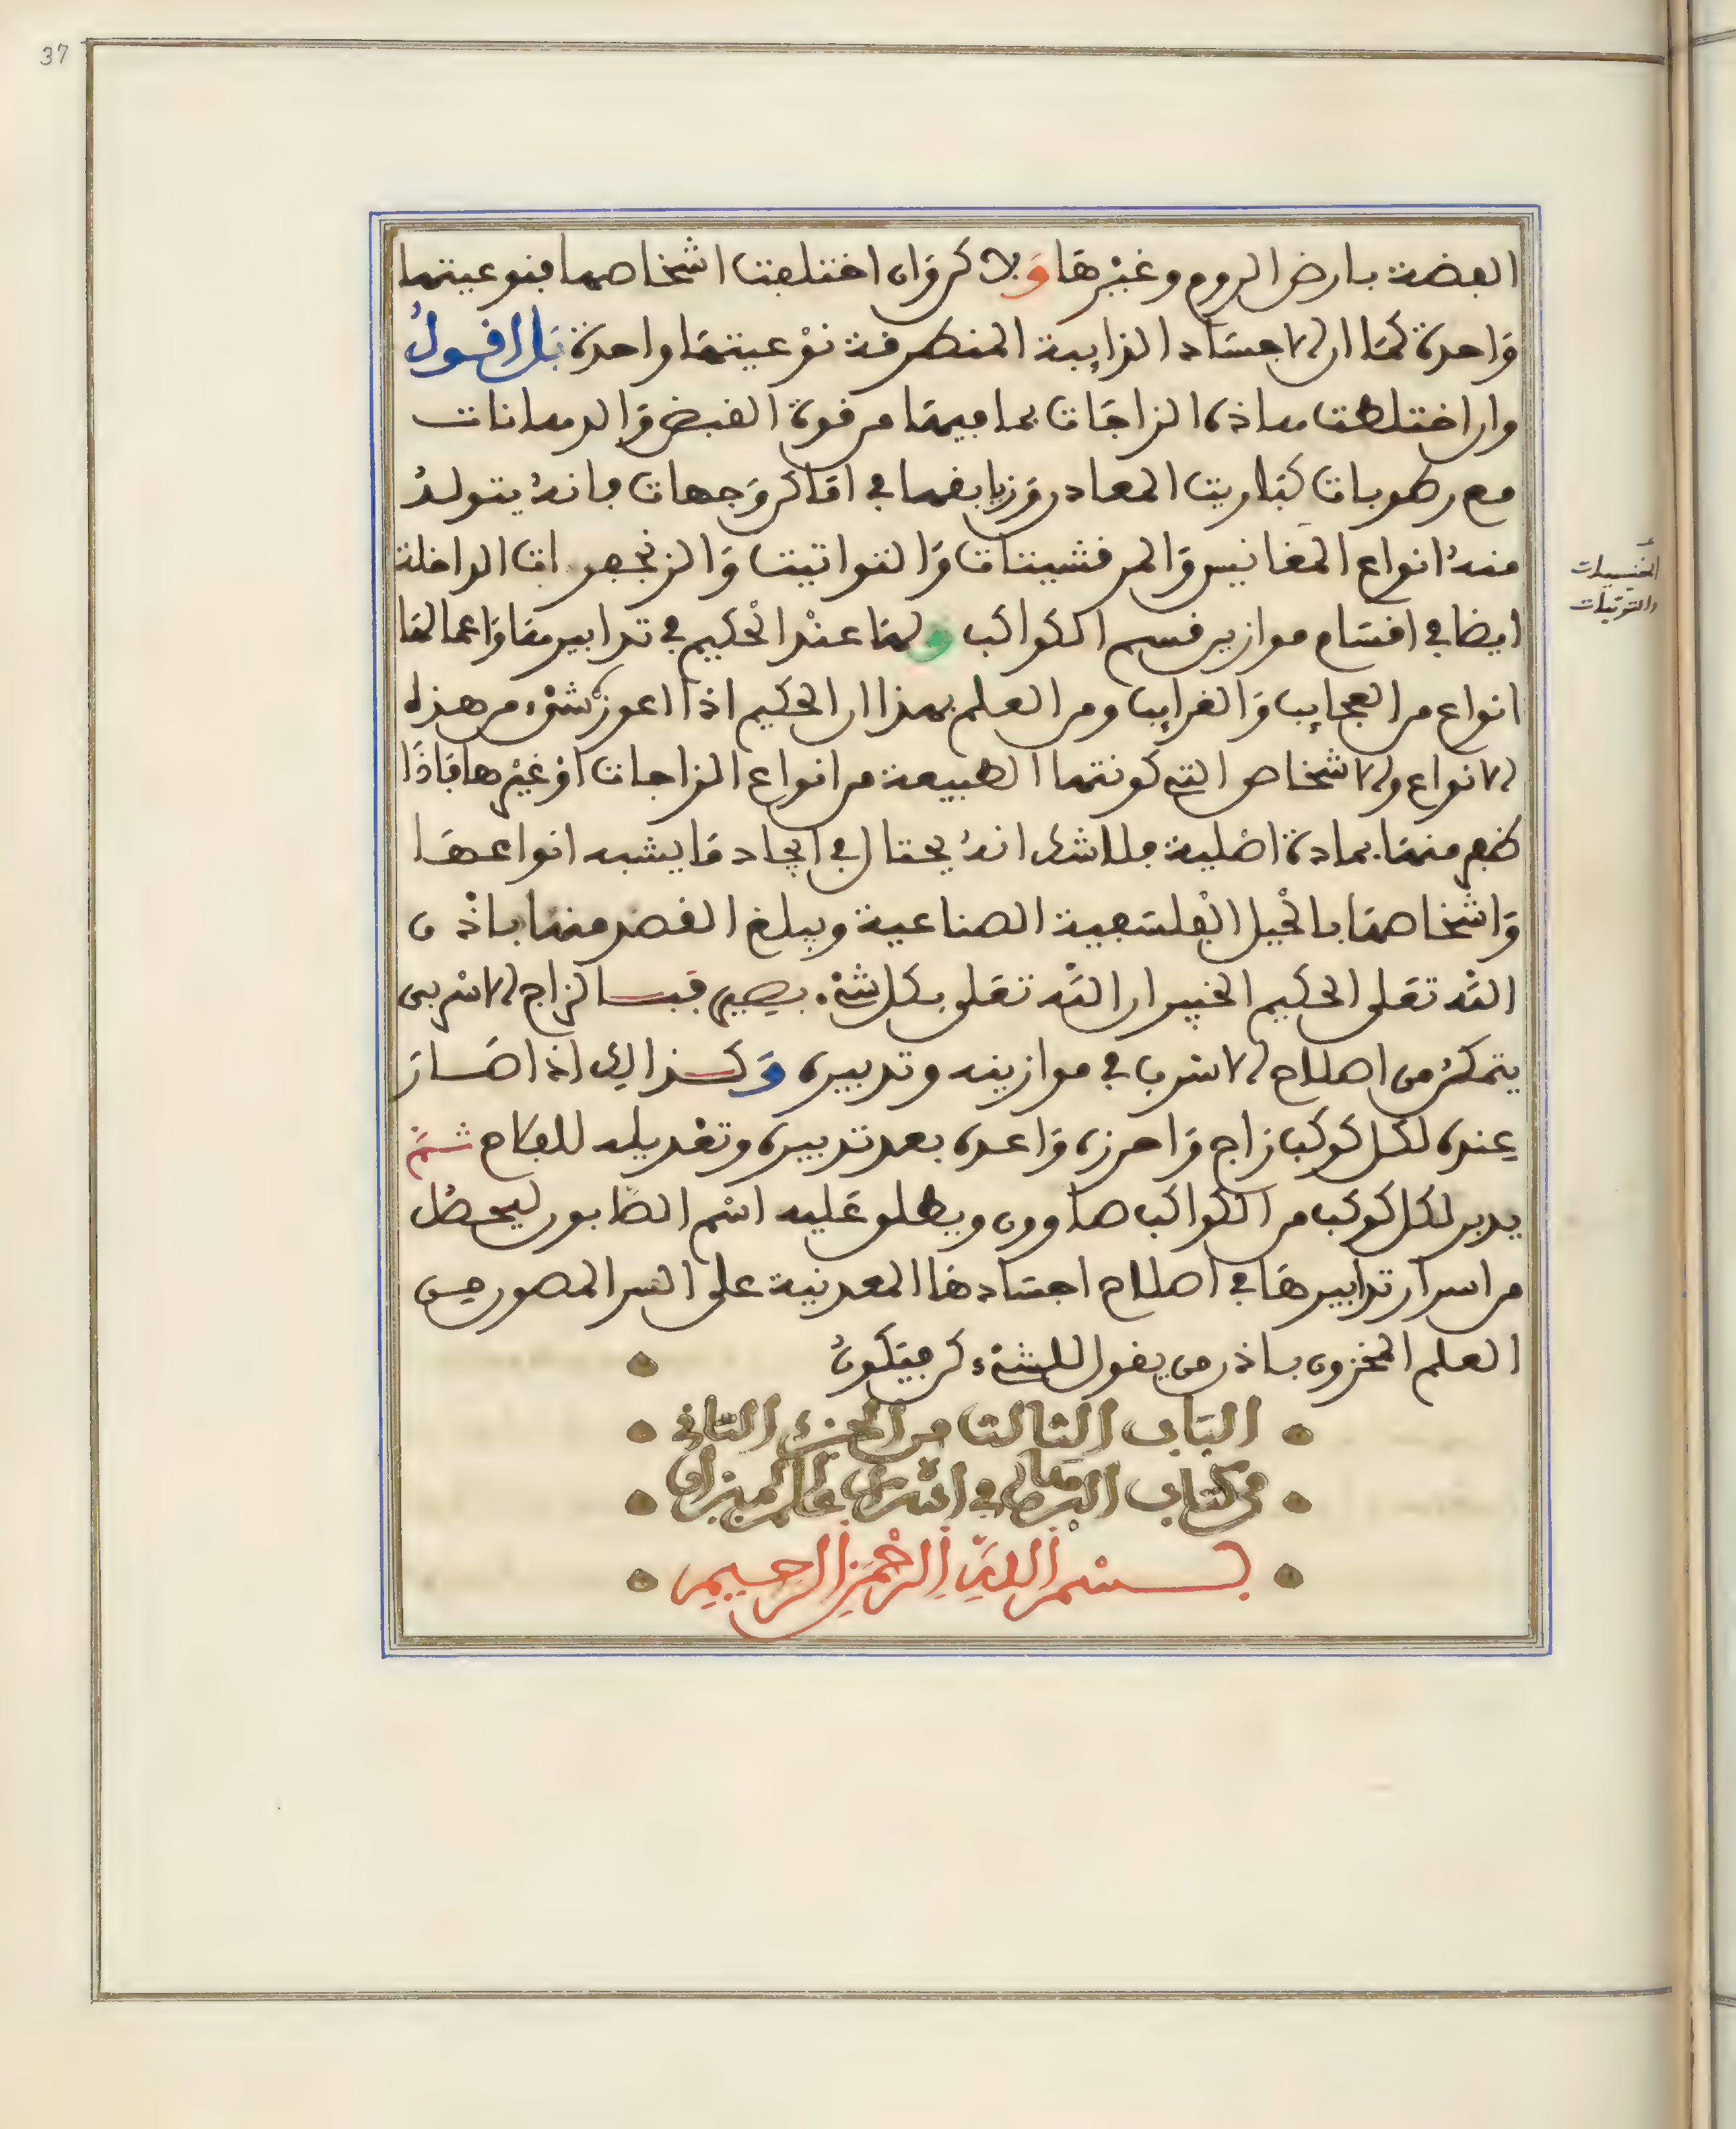 37
الفضة بارض الروم وغيرها ولاكن وان اختلفت اشخاصها فنوعيتها
واحدة كما ان الاجساد الذايبة المنطرفة نوعيتها واحدة بل اقول
وان اختلطت هاذه الزاجات بما فيها من قوة القبض والدهانات
مع رطوبات كباريت المعادن وزيابقها في اماكن وجهات فانه يتولد
منه انواع المغانيس والمرقشيتات والتواتيت والزنجفرات الداخلة
المغنيسيات
والتوتيات
ايضا في اقسام موازين قسم الكواكب ولها عند الحكيم في تدابيرها واعمالها
انواع من العجايب والغرايب ومن العلم بهذا ان الحكيم اذا اعوزه شيء من هذه
الانواع والاشخاص التي كونتها الطبيعة من انواع الزاجات او غيرها فاذا
ظفر منها بمادة اصلية فلا شك انه يحتال في ايجاد ما يشبه انواعها
واشخاصها بالحيل الفلسفية الصناعية ويبلغ القصد منها باذن
الله تعلى الحكيم الخبير ان الله تعلى بكل شيء بصير فبالزاج الاسربي
يتمكن من اصلاح الاسرب في موازينه وتدبيره وكذالك اذا صار
عنده لكل كوكب زاج واحرزه واعده بعد تدبيره وتعديله للعلاج ثم
يدبر لكل كوكب من الكواكب صاوون ويطلق عليه اسم الصابون ليحصل
من اسرار تدابيرها في اصلاح اجسادها المعدنية على السر المصون من
العلم المخزون باذن من يقول للشيء كن فيكون
الباب الثالث من الجزء الثاني
من كتاب البرهان في اسرار علم الميزان
بسم الله الرحمن الرحيم